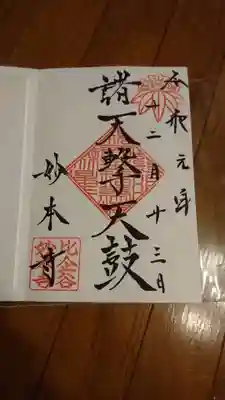 令和元年
十二月廿三日
諸天撃天鼓
妙本寺
比企谷